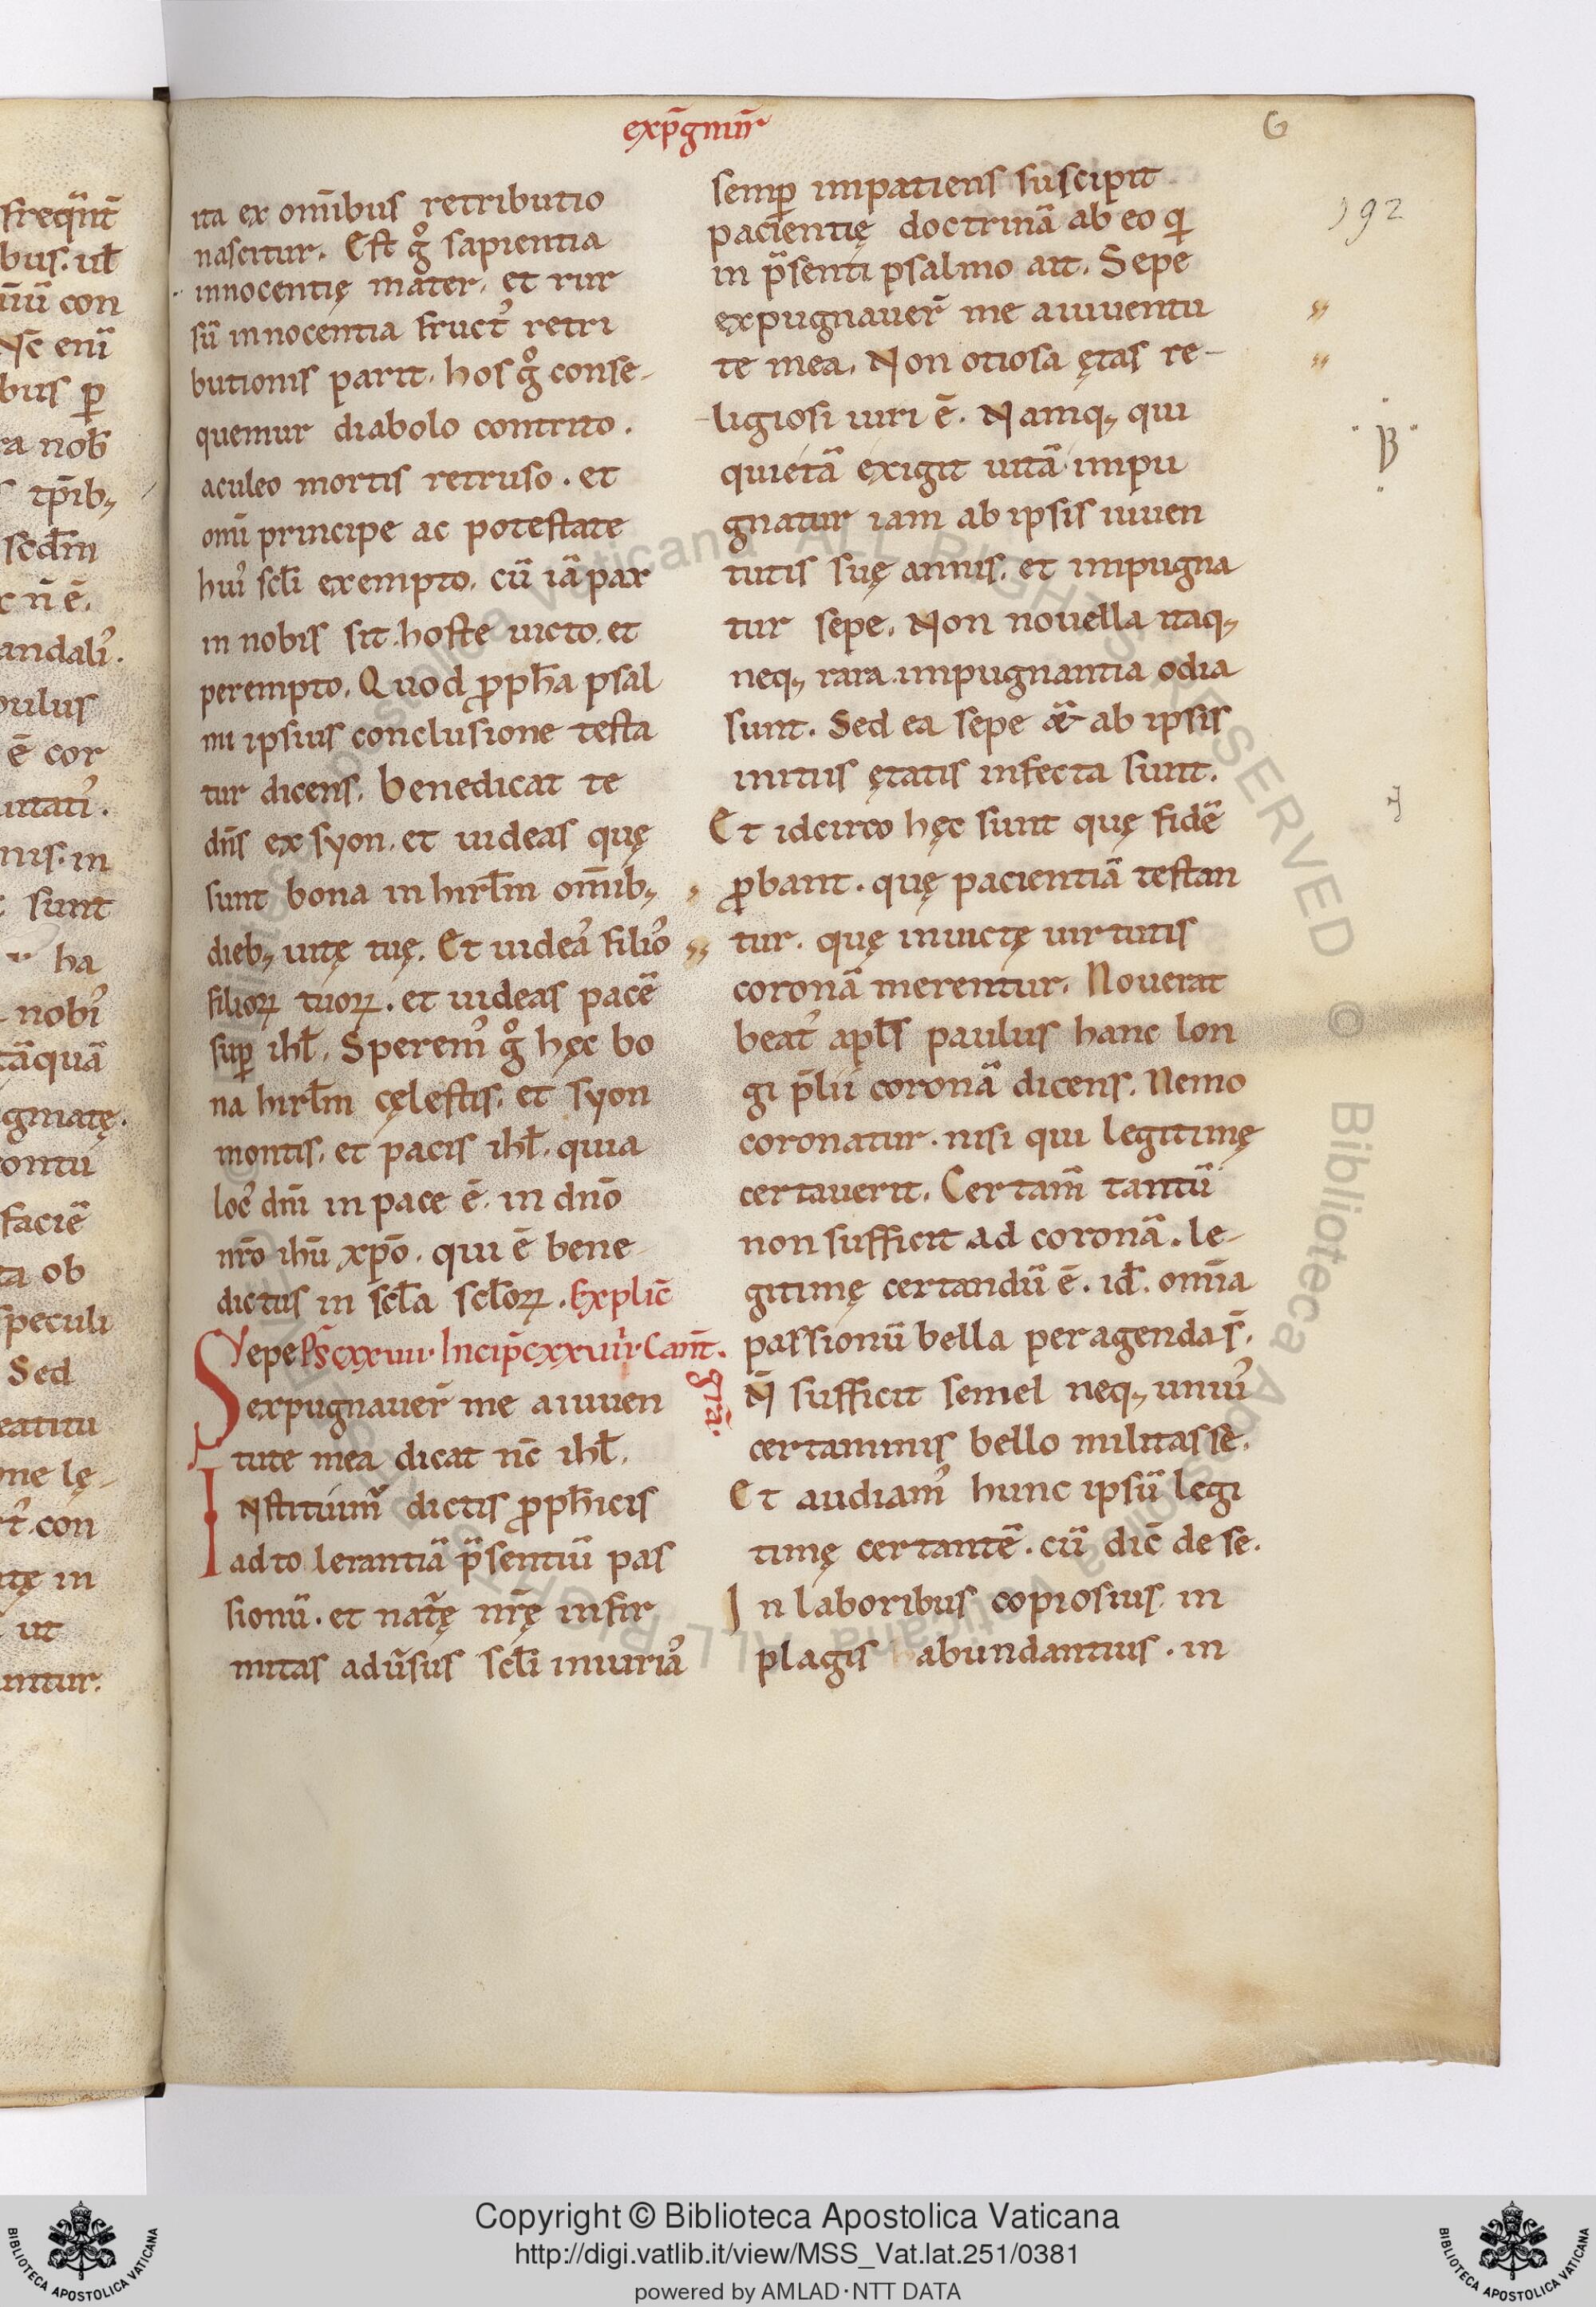 exp̄gnūr̄
G
192
freq̄nt̄
bus. ul̄
con
enī
bus ꝑ
ra nob̄
tp̄ib;
scd̄m
c n̄ ē.
andali᷒.
pulus
ē cor
uitati᷒.
nis. in
sunt
ha
nobi᷒
tāquā
gmatę.
contu
faciē
ta ob
speculi
Sed
eatitu
ne lę-
con
tę in
ut
untur.
ita ex om̄ibus retributio
nascitur. Est gͦ sapientia
innocentię mater. et rur
sū innocentia fruct᷒ retri
butionis parit. hos gͦ conse-
quemur diabolo contrito.
aculeo mortis retruso. et
omī principe ac potestate
hui᷒ scl̄i exempto. cū iā pax
in nobis sit. hoste uicto. et
perempto. Quod ꝓph̄a psal
mi ipsius conclusione testa
tur dicens. benedicat te
dn̄s ex syon. et uideas quę
sunt bona in hirl̄m om̄ib;
dieb; uitę tuę. Et uidea᷒ filio᷒
filioꝝ tuoꝝ. et uideas pacē
suꝑ ihl̄. Sperem᷒ gͦ hęc bo
na hirl̄m cęlestis. et syon
montis. et pacis ihl̄. quia
loc᷒ dn̄i in pace ē. in dn̄o
nr̄o ihū xp̄o. qui ē bene
dictus in scl̄a scl̄oꝝ. Explic̄
Sepe Ps̄ cxxuii. Incip̄ cxxuiii. Cant̄.
grā.
expugnauer̄ me a iuuen
tute mea dicat nc̄ ihl̄.
Instituim᷒ dictis ꝓph̄icis
ad to lerantiā p̄sentiū pas
sionū. et nat̄ę nr̄ę infir
mitas adūsus scl̄i iniuria᷒
semꝑ impatiens suscipit
pacientię doctrinā ab eo qi
in p̄senti psalmo ait. Sepe
expugnauer̄ me a iuuentu
te mea. Non otiosa ętas re-
ligiosi uiri ē. Namq; qui
quietā exigit uitā impu
gnatur iam ab ipsis iuuen
tutis suę annis. et impugna
tur sepe. Non nouella itaq;
neq; rara impugnantia odia
sunt. Sed ea sepe & ab ipsis
initiis ętatis infecta sunt.
Et idcirco hęc sunt quę fidē
ꝓbant. quę pacientiā testan
tur. quę inuictę uirtutis
coronā merentur. Nouerat
beat᷒ apl̄s paulus hanc lon
gi p̄lii coronā dicens. Nemo
coronatur. nisi qui legitimę
certauerit. Certam̄ tantū
non sufficit ad coronā. le-
gitimę certandū ē. id̄. om̄ia
passionū bella peragenda s̄.
N̄ sufficit semel neq; uniu᷒
certaminis bello militasse.
Et audiam᷒ hunc ipsū legi
timę certantē. cū dic̄ de se.
In laboribus copiosius. in
plagis abundantius. in
Copyright © Biblioteca Apostolica Vaticana
http://digi.vatlib.it/view/MSS_Vat.lat.251/0381
powered by AMLAD·NTT DATA
BIBLIOTECA APOSTOLICA VATICANA
BIBLIOTECA APOSTOLICA VATICANA